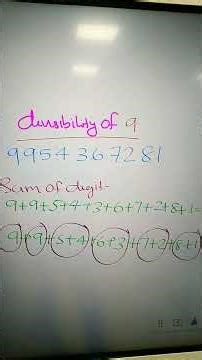 divisibility of 9
9954367281
Sum of digit-
9+9+5+4+3+6+7+2+8+1=
9+9+5+4+6+3+7+2+8+1